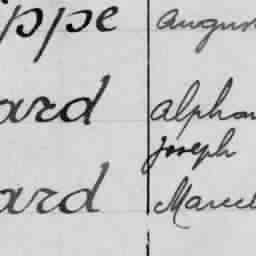 ippe Augus
ard Alphon
Joseph
ard Marcel